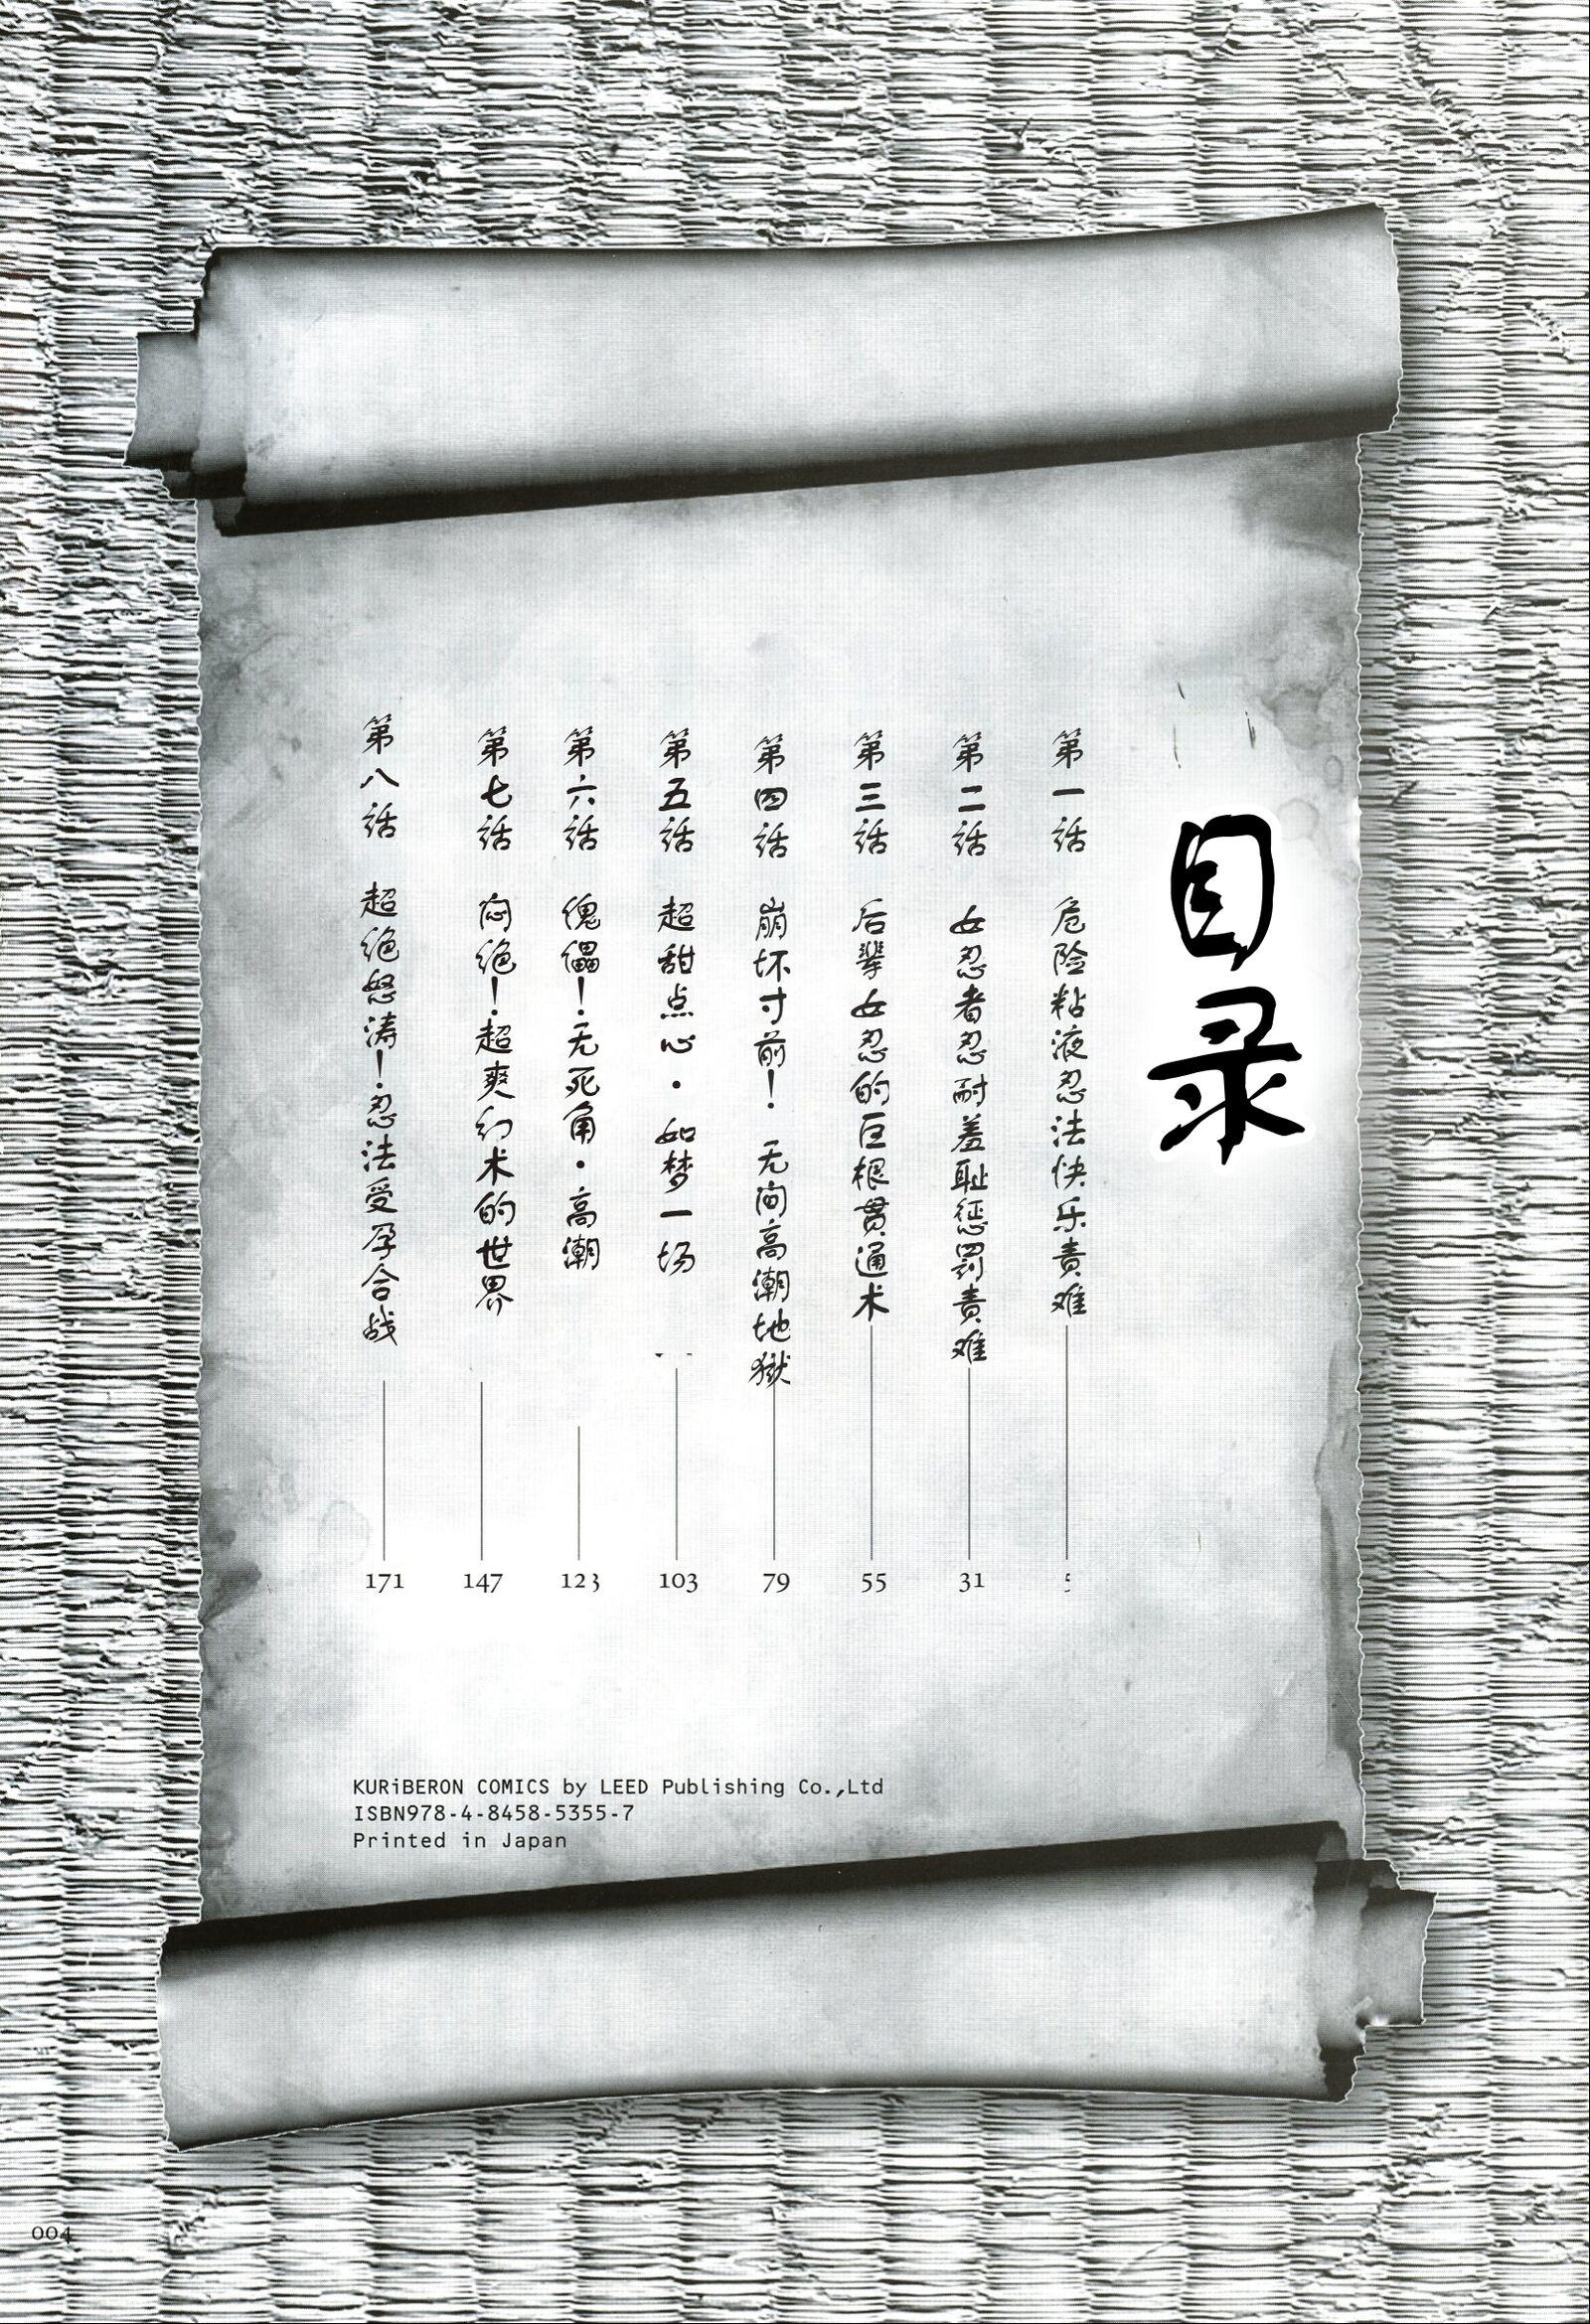 目录
第一话 危险粘液忍法快乐责难
第二话 女忍者忍耐羞耻惩罚责难
31
第三话 后辈女忍的巨根贯通术
55
第四话 崩坏寸前！ 无间高潮地狱
79
第五话 超甜点心・如梦一场
103
第六话 傀儡！无死角・高潮
123
第七话 闷绝！超爽幻术的世界
147
第八话 超绝怒涛！忍法受孕合战
171
KURiBERON COMICS by LEED Publishing Co.,Ltd
ISBN978-4-8458-5355-7
Printed in Japan
004